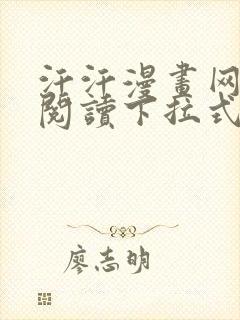 汗汗漫畫网
閱讀下拉式
廖志明